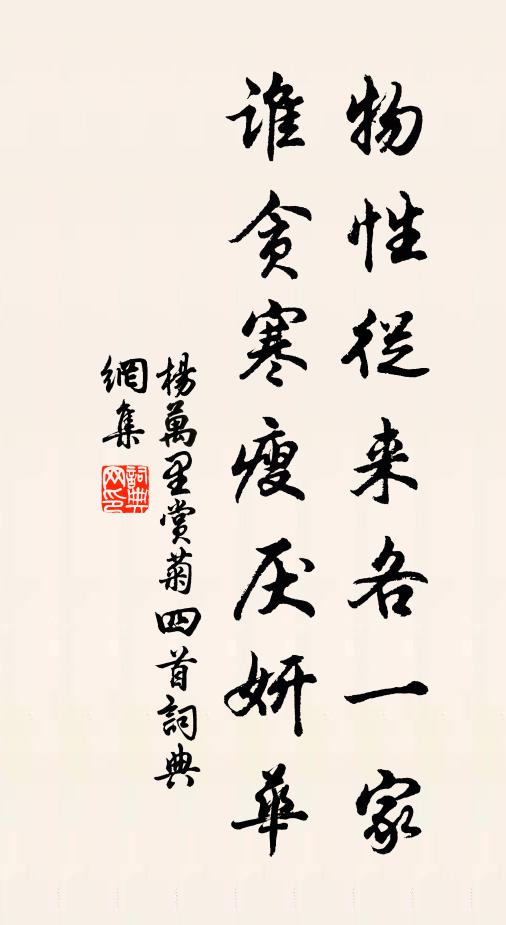 物性從来各一家
谁贪寒瘦厌妍華
楊萬里賞菊四首詞典
網集
詞典
网印